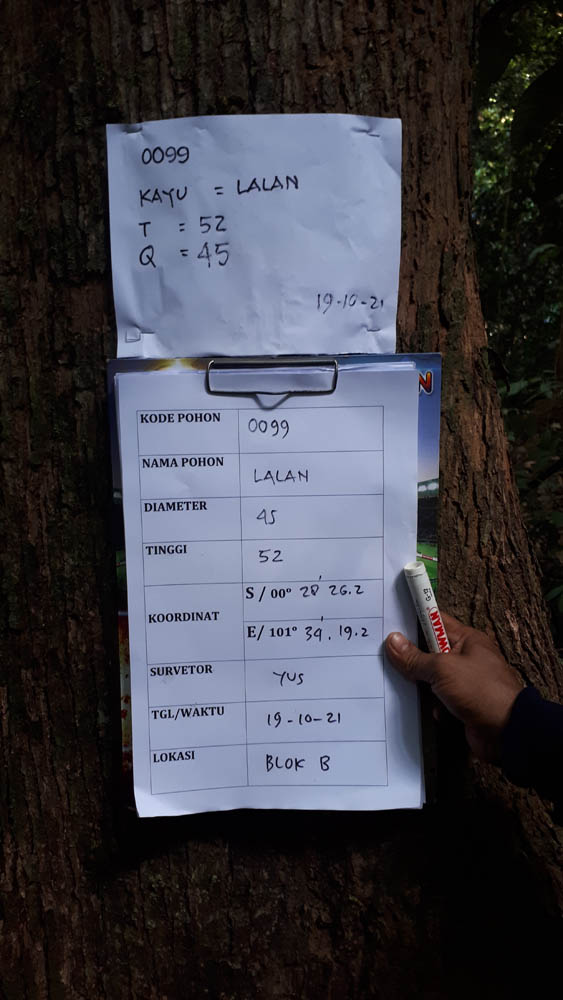 0099
KAYU = LALAN
T = 52
Q = 45
19-10-21
N
KODE POHON 0099
NAMA POHON LALAN
DIAMETER 45
TINGGI 52
KOORDINAT
S / 00º 28' 26.2
E/ 101º 34' . 19.2
SURVETOR YUS
TGL/WAKTU 19-10-21
LOKASI BLOK B
OWMAN